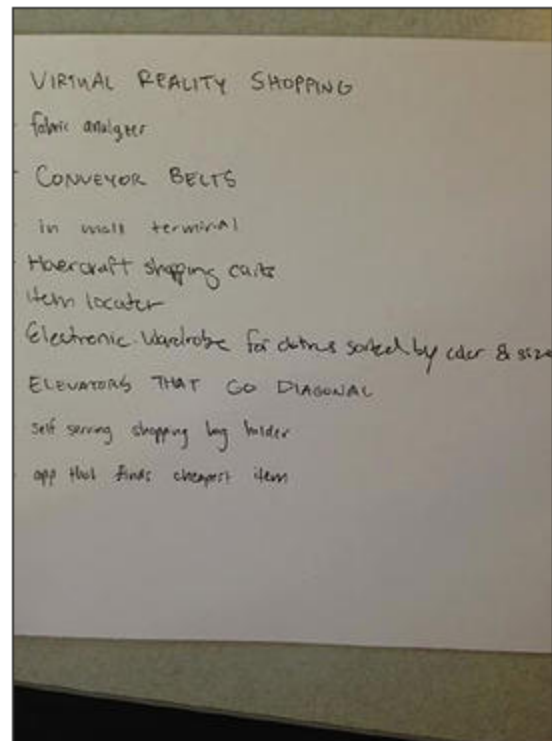 VIRTUAL REALITY SHOPPING
fabric analyzer
CONVEYOR BELTS
in mall terminal
Hovercraft shopping carts
item locater
Electronic Wardrobe for clothes sorted by color & size
ELEVATORS THAT GO DIAGONAL
self serving shopping bag holder
app that finds cheapest item